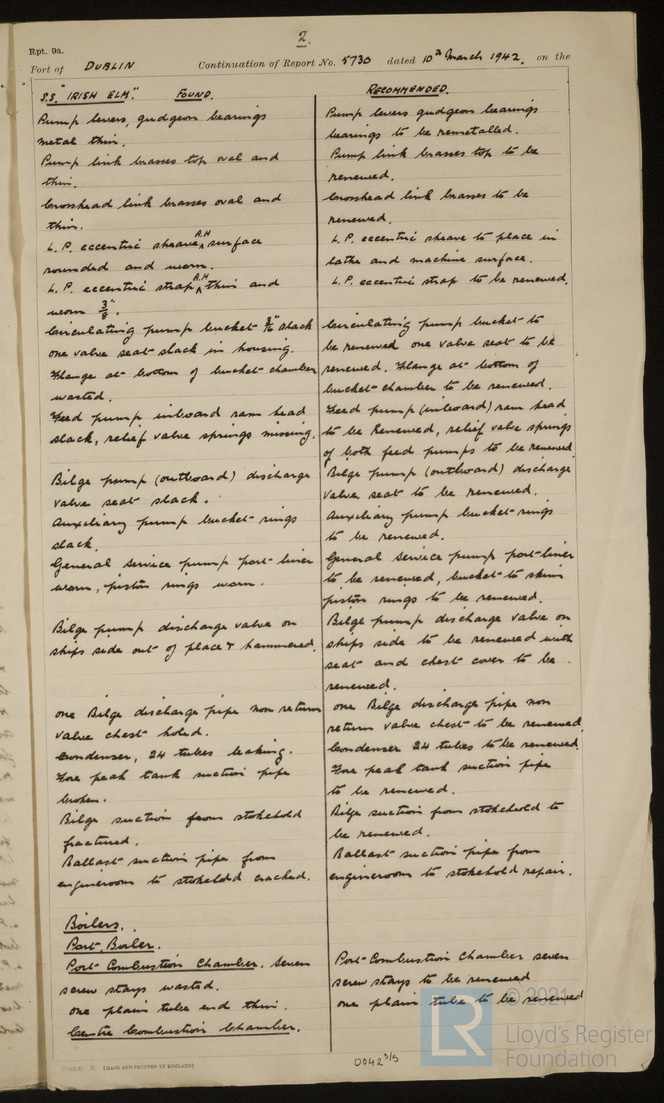 2.
Rpt. 9a.
Port of DUBLIN Continuation of Report No. 5730 dated 10th March 1942. on the
S.S. "IRISH ELM". FOUND.
Pump levers, gudgeon bearings
metal thin.
Pump link brasses top oval and
thin.
Crosshead link brasses oval and
thin.
L.P. eccentric sheave A.H surface
rounded and worn.
L.P. eccentric strap A.H thin and
worn 3/8".
Circulating pump bucket 3/16" slack
one valve seat slack in housing.
Flange at bottom of bucket chamber
wasted.
Feed pump inboard ram head
slack, relief valve springs missing.
Bilge pump (outboard) discharge
valve seat slack.
Auxiliary pump bucket rings
slack.
General service pump port liner
worn, piston rings worn.
Bilge pump discharge valve on
ships side out of place & hammered.
one Bilge discharge pipe non return
valve chest holed.
Condenser, 24 tubes leaking.
Fore peak tank suction pipe
broken.
Bilge suction from stokehold
fractured.
Ballast suction pipe from
engineroom to stokehold cracked.
Boilers.
Port Boiler.
Port Combustion Chamber. Seven
screw stays wasted.
one plain tube end thin.
Centre Combustion Chamber.
RECOMMENDED.
Pump levers gudgeon bearings
bearings to be remetalled.
Pump link brasses top to be
renewed.
Crosshead link brasses to be
renewed.
L.P. eccentric sheave to place in
lathe and machine surface.
L.P. eccentric strap to be renewed.
Circulating pump bucket to
be renewed one valve seat to be
renewed. Flange at bottom of
bucket chamber to be renewed.
Feed pump (inboard) ram head
to be Renewed, relief valve springs
of both feed pumps to be renewed
Bilge pump (outboard) discharge
valve seat to be renewed.
Auxiliary pump bucket rings
to be renewed.
General Service pump port liner
to be renewed, bucket to skim
piston rings to be renewed.
Bilge pump discharge valve on
ships side to be renewed with
seat and chest cover to be
renewed.
one Bilge discharge pipe non
return valve chest to be renewed.
Condenser 24 tubes to be renewed.
Fore peak tank suction pipe
to be renewed.
Bilge suction from stokehold to
be renewed.
Ballast suction pipe from
engineroom to stokehold repair.
Port Combustion Chamber seven
screw stays to be renewed
one plain tube to be renewed
(MADE AND PRINTED IN ENGLAND)
0042 3/5
© 2021
LR
Lloyd's Register
Foundation